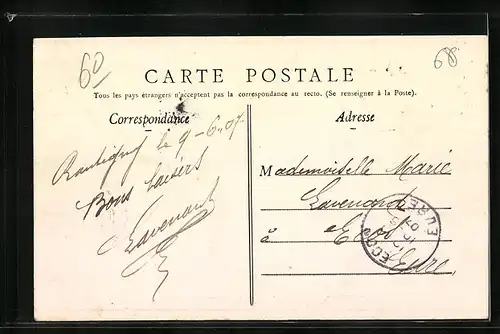 60
68
CARTE POSTALE
Tous les pays étrangers n'acceptent pas la correspondance au recto. (Se renseigner à la Poste).
Correspondance
Rantigny le 9-6-07
Bons baisers
Lavenant
Adresse
Mademoiselle Marie
Lavenant
à
Eure
EURE
07